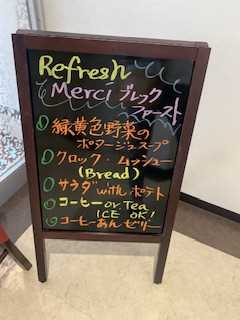 Refresh
Merci ブレック
ファースト
緑黄色野菜の
ポタージュスープ
クロック・ムッシュー
(Bread)
サラダ with ポテト
コーヒー or Tea
ICE OK!
コーヒーあんゼリー